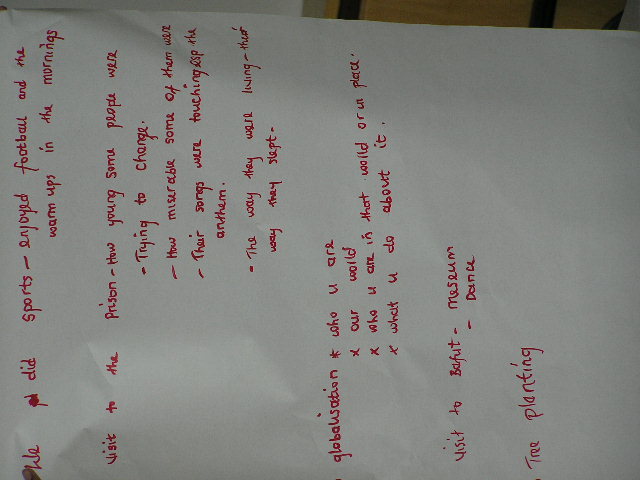 We did sports - enjoyed football and the
warm ups in the mornings
Visit to the prison - How young some people were
- Trying to change.
- How miserable some of them were
- Their songs were touching esp the
anthem.
- The way they were living - their
way they slept -
globalisation * who u are
x our world
x who u are in that world or ur place.
x what u do about it.
Visit to Bafut - meseum
- Dance
Tree planting